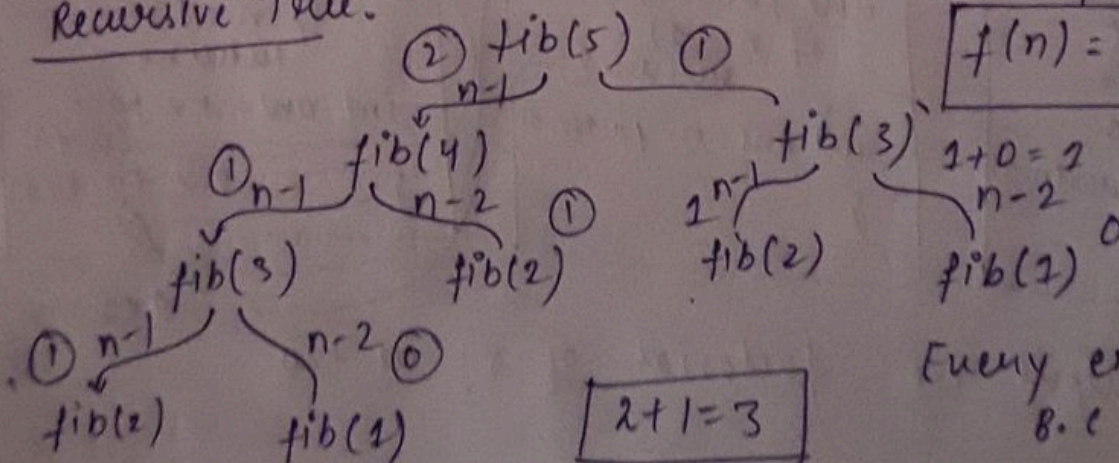 Recursive Tree.
② fib(5) ①
f(n) =
n-1
fib(4)
fib(3)
1+0=1
① n-1
n-2 ①
1 n-1
n-2
fib(3)
fib(2)
fib(2)
fib(1)
① n-1
n-2 ⓪
Every
fib(2)
fib(1)
2+1=3
B.C